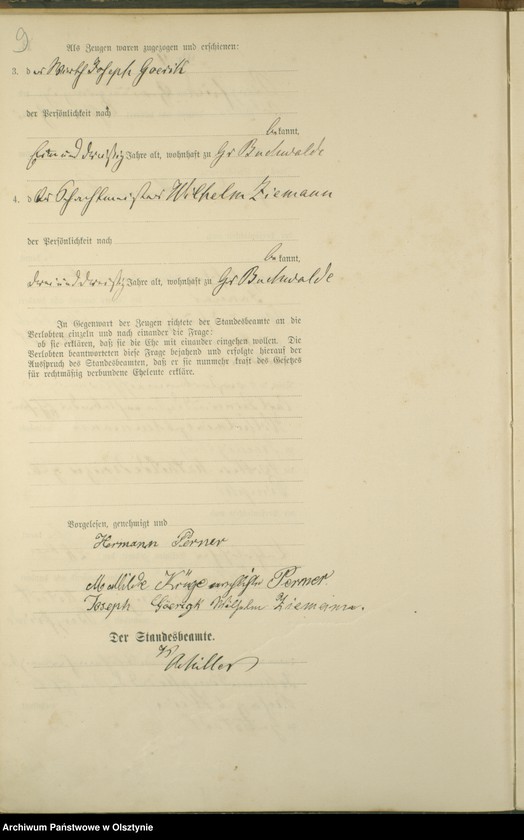 9.
Als Zeugen waren zugezogen und erschienen:
3. der Wirth Joseph Goerik
der Persönlichkeit nach
bekannt,
Ein und dreißig Jahre alt, wohnhaft zu Gr Buchwalde
4. der Schachtmeister Wilhelm Ziemann
der Persönlichkeit nach
bekannt,
drei und dreißig Jahre alt, wohnhaft zu Gr Buchwalde
In Gegenwart der Zeugen richtete der Standesbeamte an die
Verlobten einzeln und nach einander die Frage:
ob sie erklären, daß sie die Ehe mit einander eingehen wollen. Die
Verlobten beantworteten diese Frage bejahend und erfolgte hierauf der
Ausspruch des Standesbeamten, daß er sie nunmehr kraft des Gesetzes
für rechtmäßig verbundene Eheleute erkläre.
Vorgelesen, genehmigt und
Hermann Perner
Mathilde Perner
Joseph Goerigk Wilhelm Ziemann.
Der Standesbeamte.
Müller
Archiwum Państwowe w Olsztynie